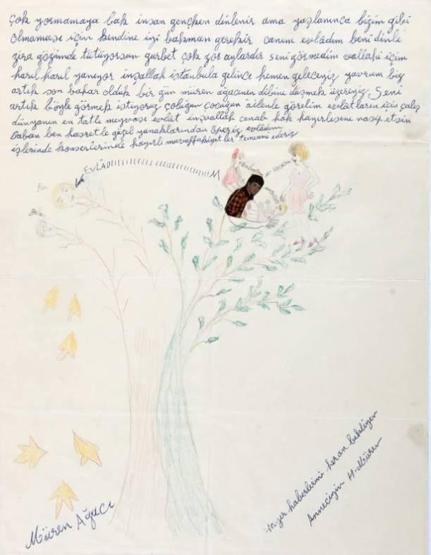 Çok yormamaya bak insan gençken dinlenir ama yaşlanınca bizim gibi
olmaması için kendine iyi bakman gerekir canım evlâdım beni dinle
zira gözümde tütüyorsun gurbet çok zor aylardır seni görmedim vallahi içim
harıl harıl yanıyor inşallah istanbula gelince hemen geleceğiz yavrum biz
artık son bahar olduk bir gün müren ağacının dibine düşmek üzereyiz. Seni
artık böyle görmek istiyoruz çoluğun çocuğun ailenle görelim evlatların için çalış
dünyanın en tatlı meyvası evlat inşallah cenab hak hayırlısını nasip etsin
baban ben hasretle güzel yanaklarından öperiz evlâdım
işlerinde konserlerinde hayırlı muvaffakiyetler temenni ederiz
EVLÂDIIIIIIIIIIIIIIIIIIM
Müren Ağacı
hayır haberlerini her an bekliyen
Anneciğin H. Müren